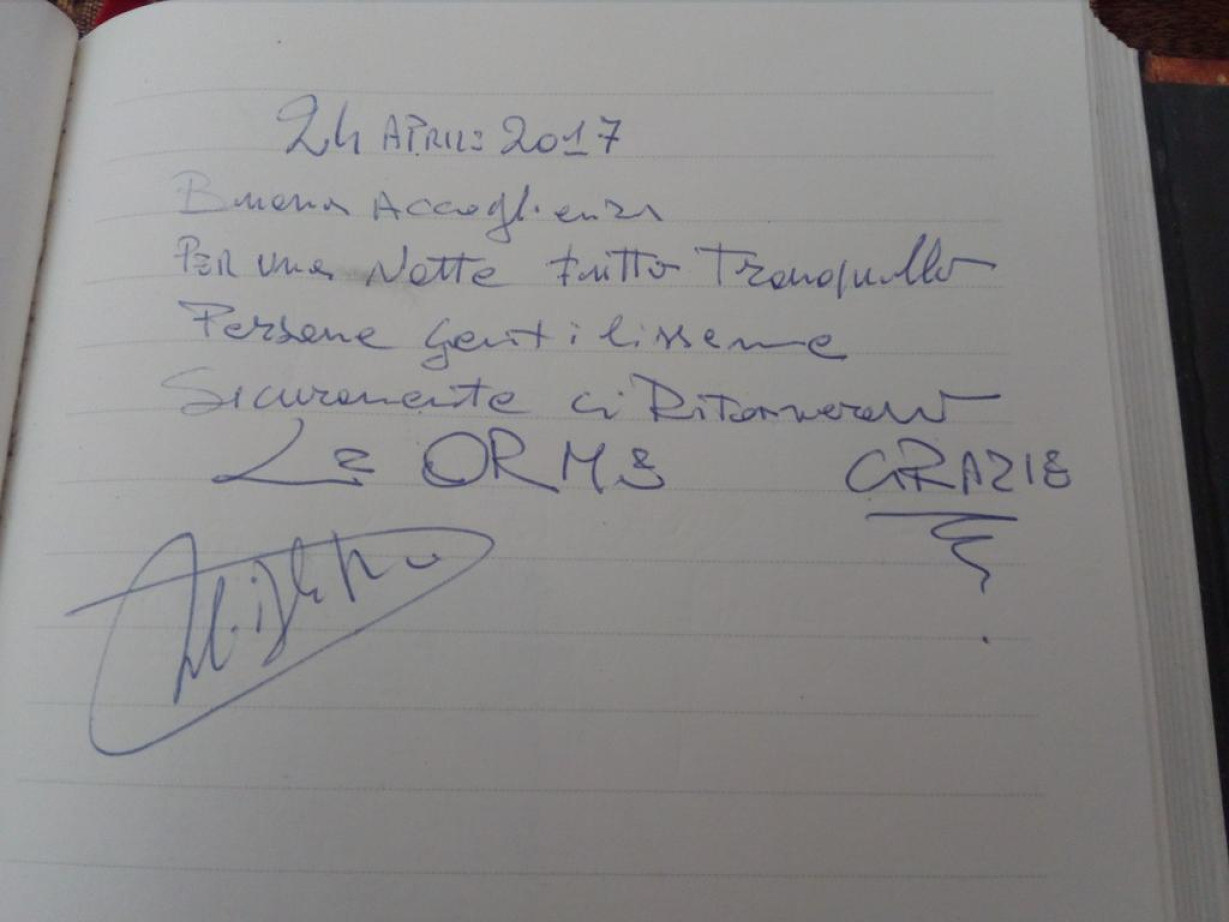 24 APRILE 2017
Buona Accoglienza
PER una Notte tutto Tranquillo
Persone gentilissime
Sicuramente ci Ritorneranno
LE ORME GRAZIE